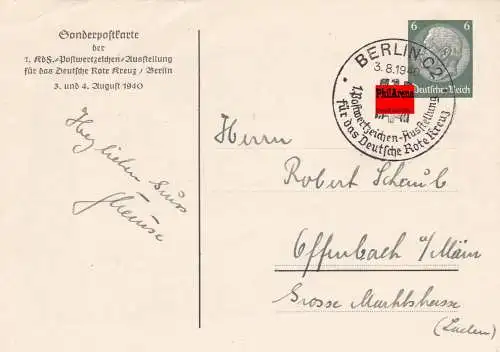 Sonderpostkarte
der
1. KdF.-Postwertzeichen-Ausstellung
für das Deutsche Rote Kreuz / Berlin
3. und 4. August 1940
Herzlichen Gruss
6 6
Deutsches Reich
BERLIN C2
3.8.1940
PhilArena
1. Postwertzeichen-Ausstellung
für das Deutsche Rote Kreuz
Herrn
Robert Schaub
Offenbach a/Main
Grosse Marktstrasse
(Laden)